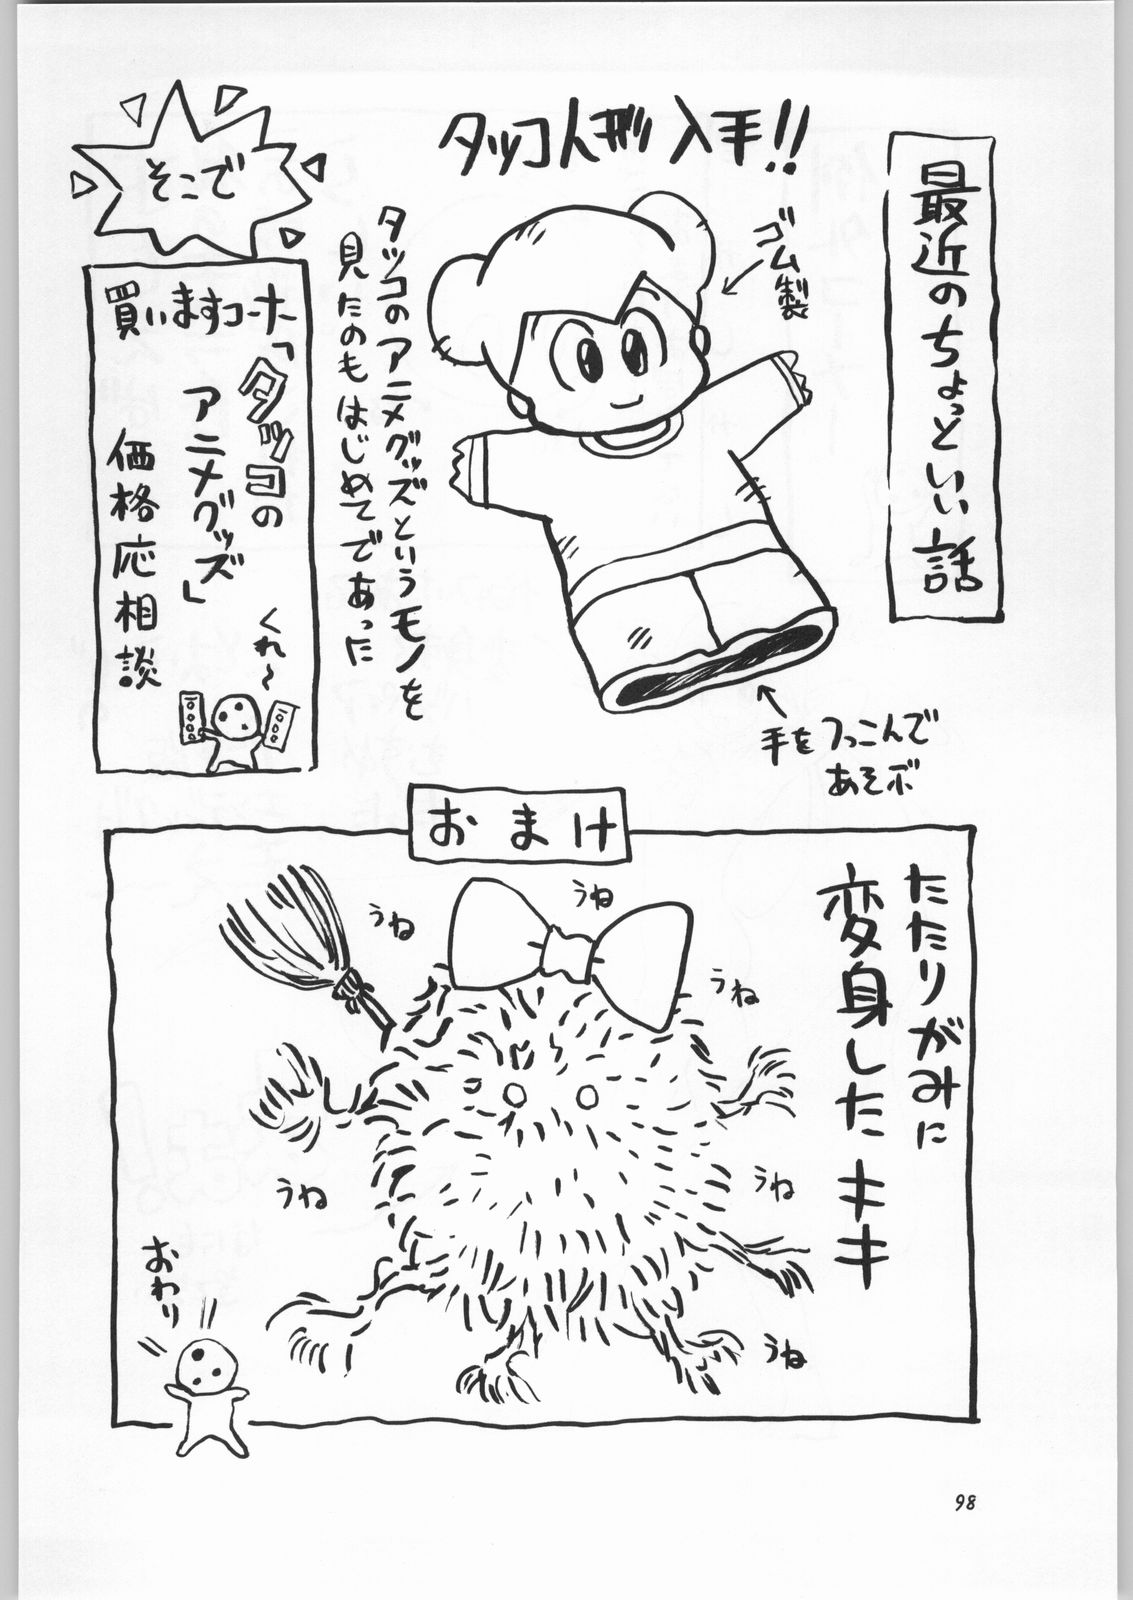 最近のちょっといい話
タッコ人形 入手!!
ゴム製
手をつっこんで
あそボ
タッコのアニメグッズというモノを
見たのもはじめてであった
そこで
買いますコーナー
「タッコの
アニメグッズ」
価格応相談
くれ〜
おまけ
たたりがみに
変身したキキ
うね
うね
うね
うね
うね
うね
おわり
98